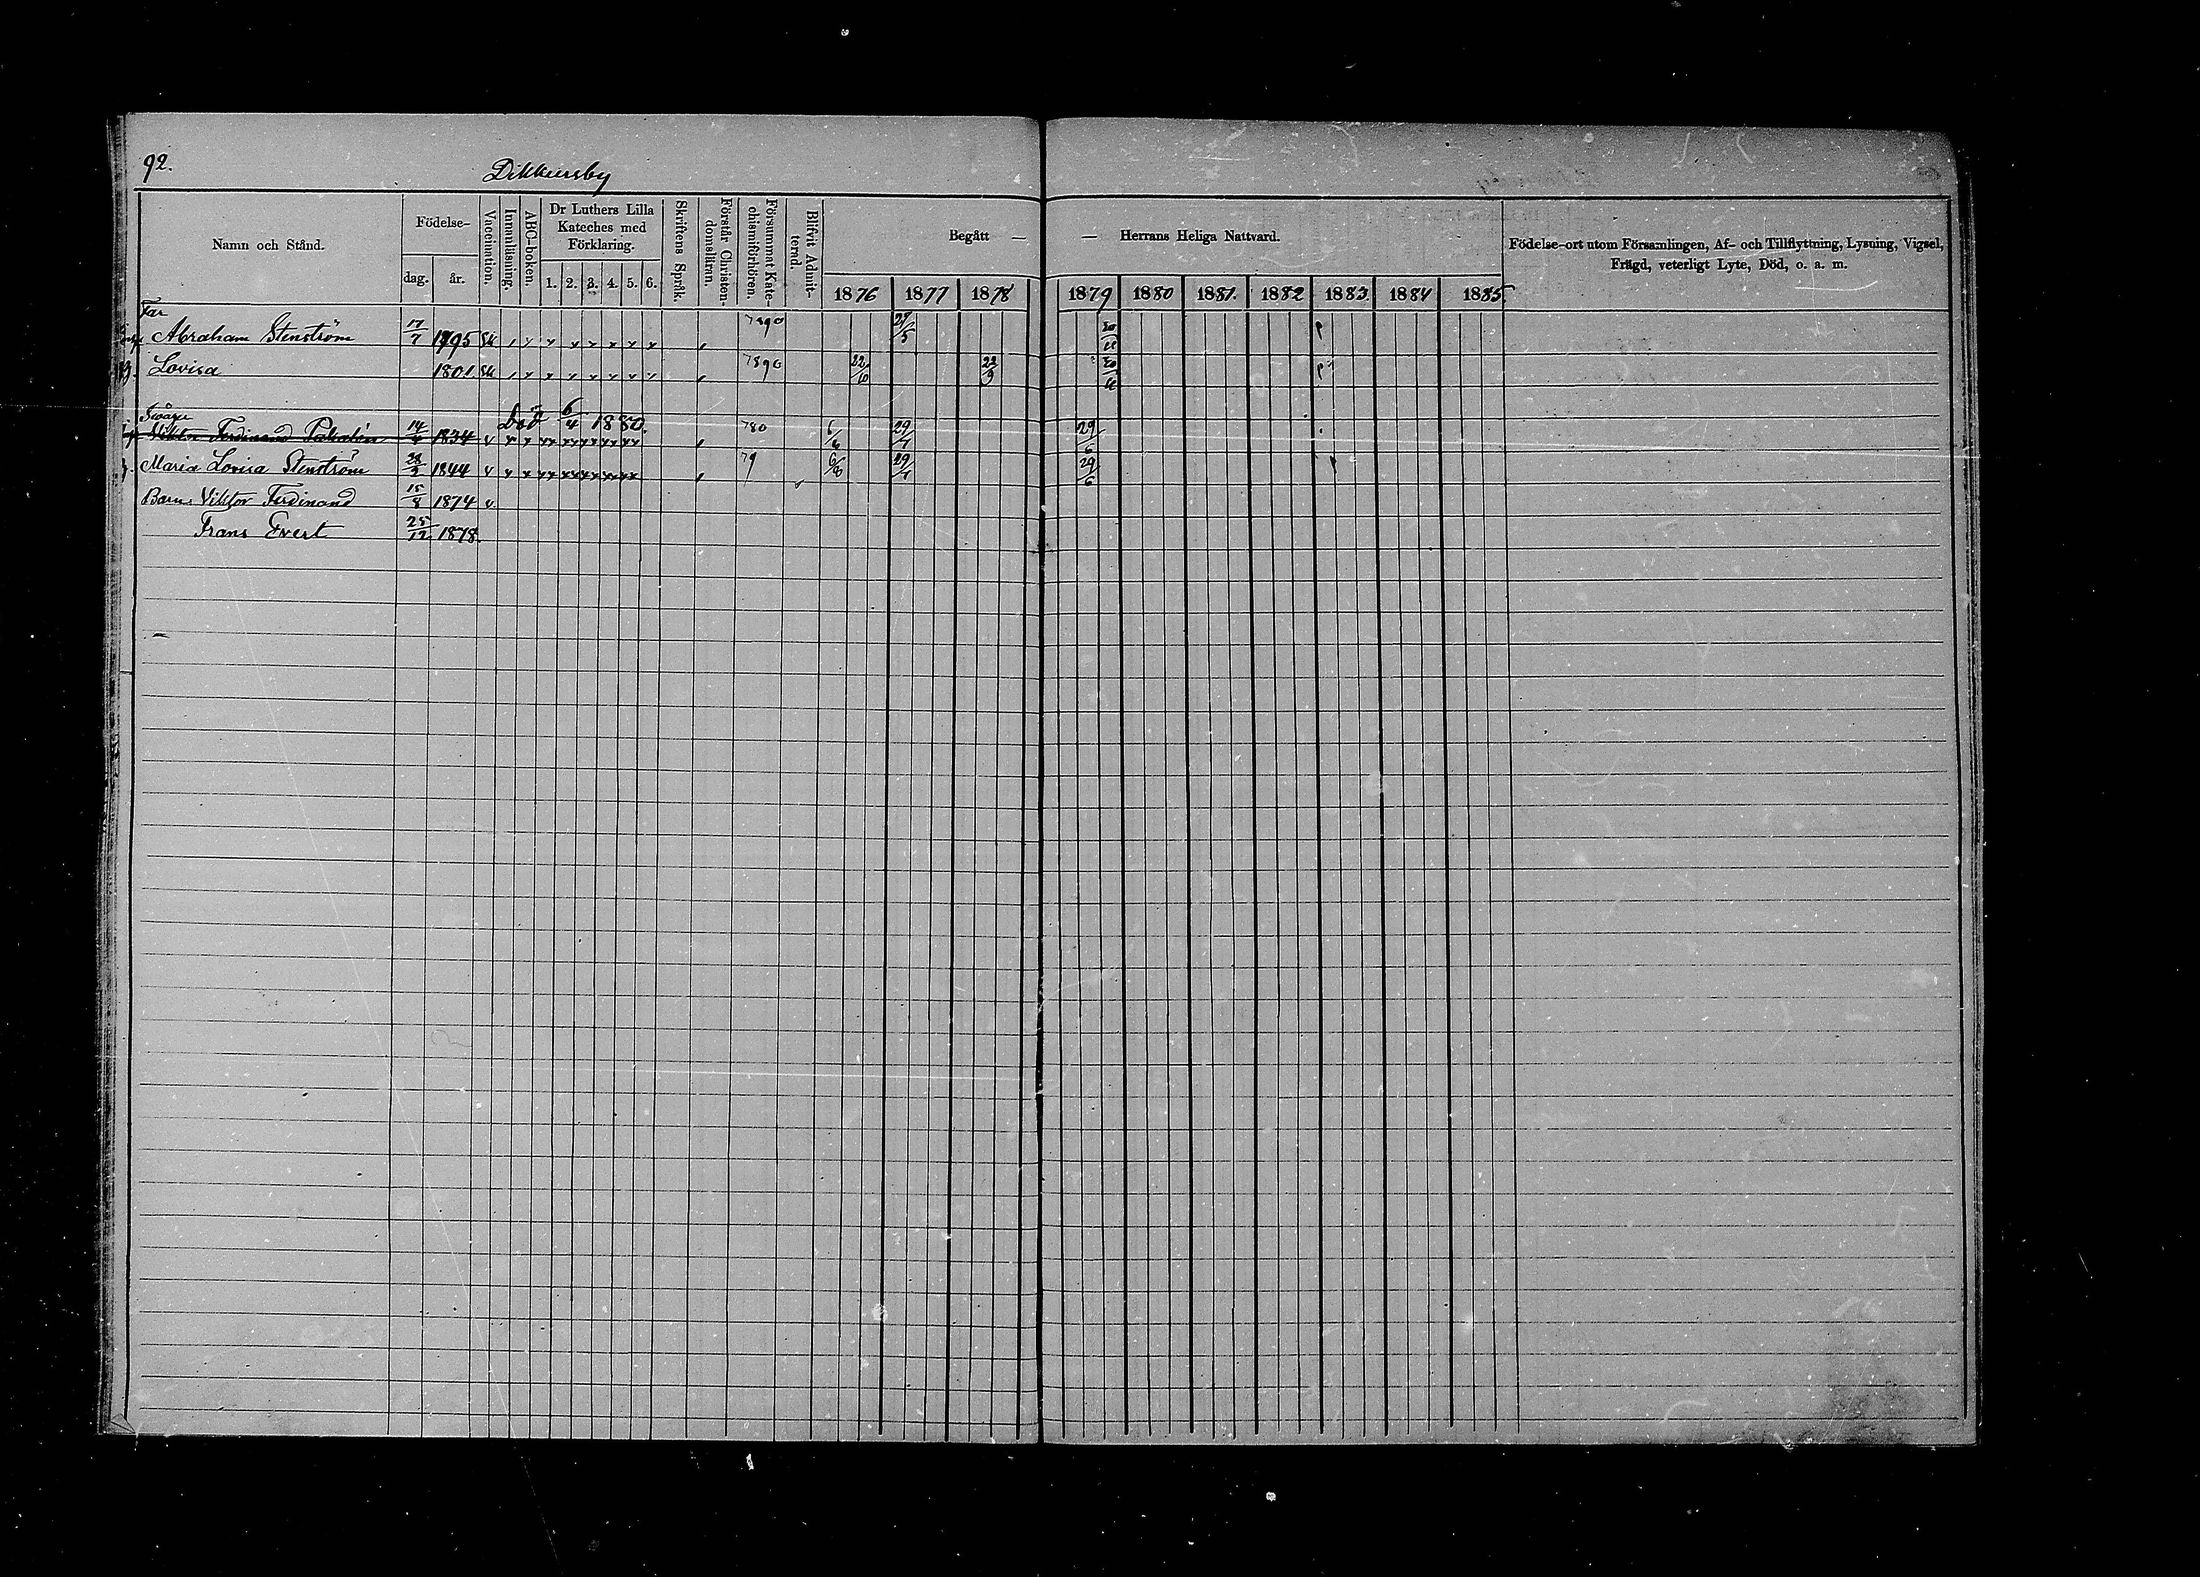 92.
Dikkursby
Namn och Stånd.
Födelse-
dag.
år.
Vaccination.
Innanläsning.
ABC-boken.
Dr Luthers Lilla
Kateches med
Förklaring.
1. 2. 3. 4. 5. 6.
Skriftens Språk.
Förstår Christen-
domsläran.
Försummat Kate-
chismiförhören.
Blifvit Admit-
terad.
Begått —
— Herrans Heliga Nattvard.
1876 1877 1878 1879 1880 1881. 1882 1883. 1884 1885.
Födelse-ort utom Församlingen, Af- och Tillflyttning, Lysning, Vigsel,
Frägd, veterligt Lyte, Död, o. a. m.
Far
Abraham Stenström 17/7 1795 7890 27/5
Lovisa 1801 7890 22/6 22/9
Död 6/4 1880.
Viktor Ferdinand 14/4 1834 v 780 29/7 29/6
Maria Lovisa Stenström 28/3 1844 v 79 6/8 29/7 29/6
Barn: Viktor Ferdinand 15/8 1874 v.
Frans Evert 25/12 1878.